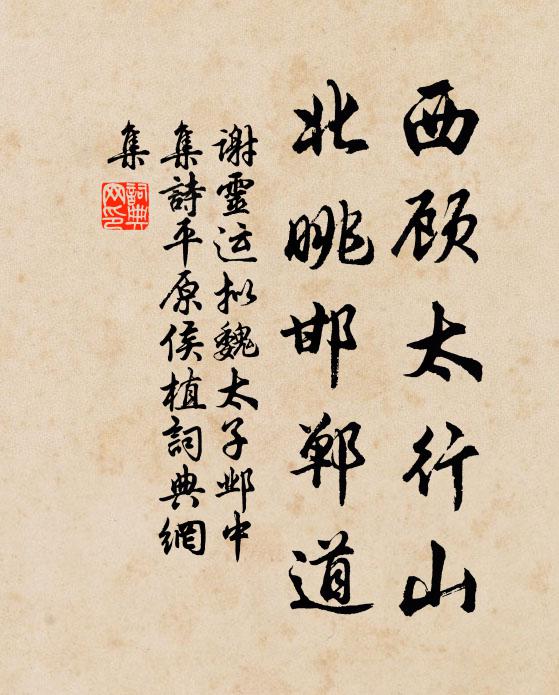 西顾太行山
北眺邯郸道
谢灵运拟魏太子邺中
集詩平原侯植詞典網
集
詞典
网印